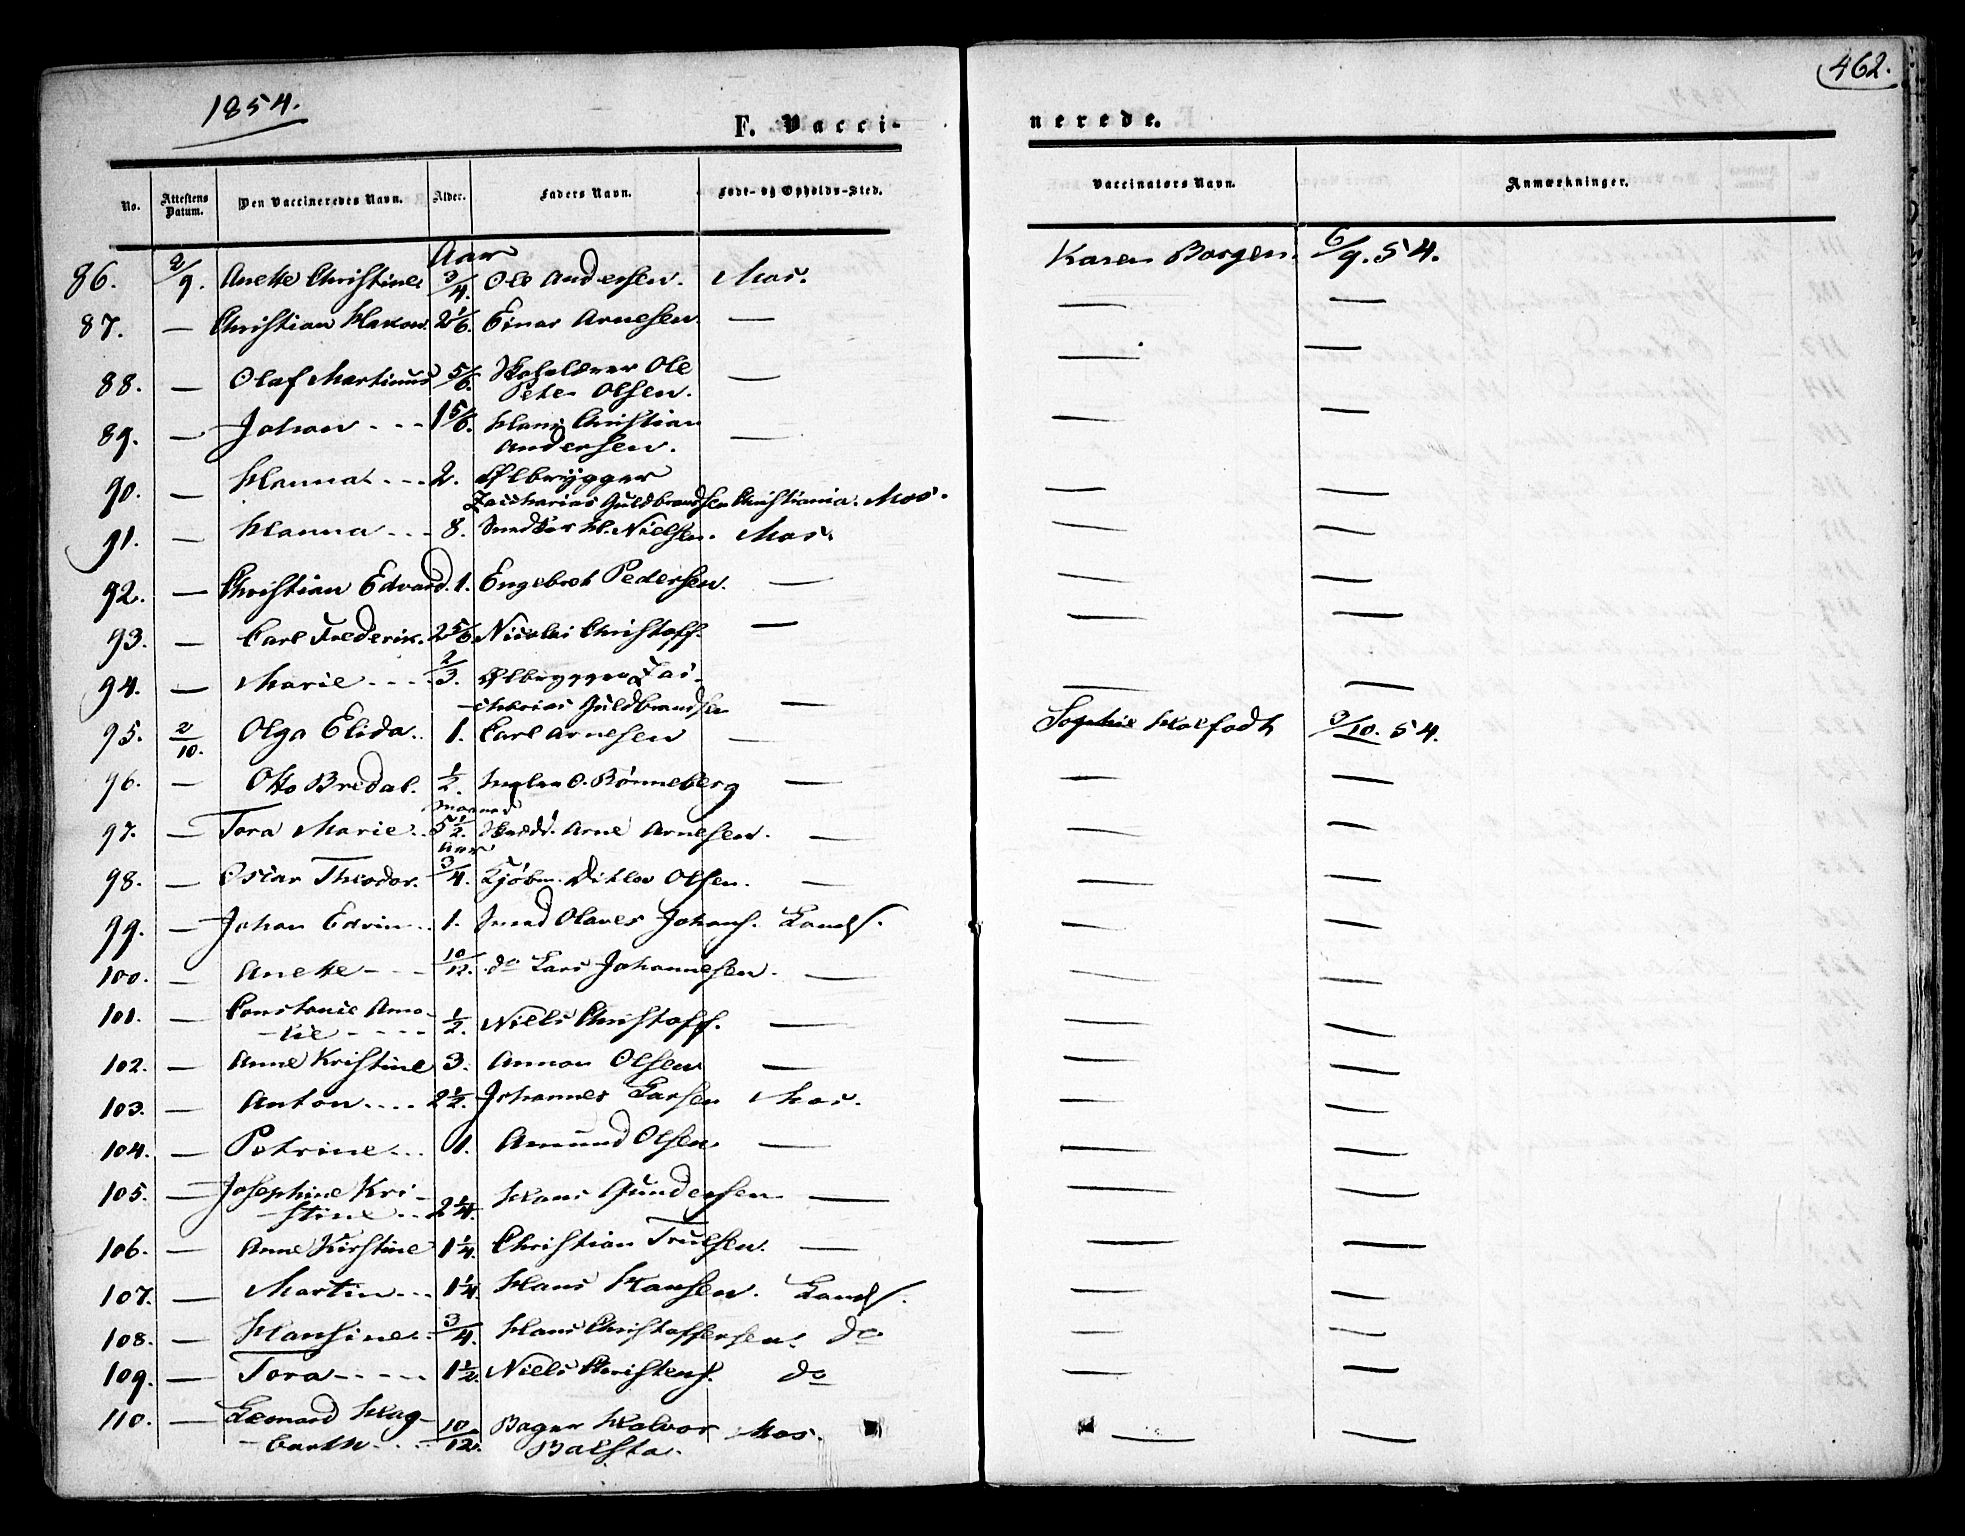 1854.
462.
F. Vacci-
nerede.
No. Attestens Datum. Den Vaccineredes Navn. Alder. Faders Navn. Føde- og Opholds-Sted. Vaccinators Navn. Anmærkninger.
Aar
86. 2/9. Anette Christine 3/4. Ole Andersen. Mos. Karen Borgen. 6/9. 54.
87. — Christian Hakon. 2 1/6. Einar Arnesen. — — —
88. — Olaf Martinus 5/6. Ole — — —
Peter Olsen.
89. — Johan - - - 1 5/6. Hans Christian
Andersen. — — —
90. — Hanna - - - 2. Ølbrygger
Zacharias Guldbrandsen Christiania. Mos. — —
91. — Hanna - - - 8. H. Nielsen. Mos. — —
92. — Christian Edvard. 1. Engebret Pedersen. — — —
93. — Carl Frederik. 2 5/6. Nicolai Christoff. — — —
94. — Marie - - - 2/3. Ølbrygger Za-
charias Guldbrandsen — — —
95. 2/10. Olga Elida.. 1. Carl Arnesen — Sophie Halfodt 3/10. 54.
96. — Otto Bredal. 1/2. O. Rønneberg — — —
Maaned
97. — Tora Marie.. 5 1/2. Arne Arnesen. — — —
Aar
98. — Oscar Theodor. 3/4. Kjøbm. Ditlev Olsen. — — —
99. — Johan Edvin.. 1. Olaves Johans. Lands. — —
100. — Anette - - - 10/12. do Lars Johannesen. — — —
101. — Constance Ama-
-lie - - - - 1/2. Niels Christoff. — — —
102. — Anne Kristine 3. Amon Olsen — — —
103. — Anton.... 2 1/2. Johannes Larsen Mos. — —
104. — Petrine... 1. Amund Olsen — — —
105. — Josephine Kri-
-stine.. 2 1/4. Hans Gundersen — — —
106. — Anne Kirstine 1 1/4. Christian Trulsen. — — —
107. — Martin... 1 1/4. Hans Hansen. Lands. — —
108. — Hansine.. 3/4. Hans Christoffersen. do — —
109. — Tora - - - - 1 1/2. Niels Christens. do — —
110. — Leonard Hag-
-barth... 10/12. Bager Halvor Mos. — —
Balsta.